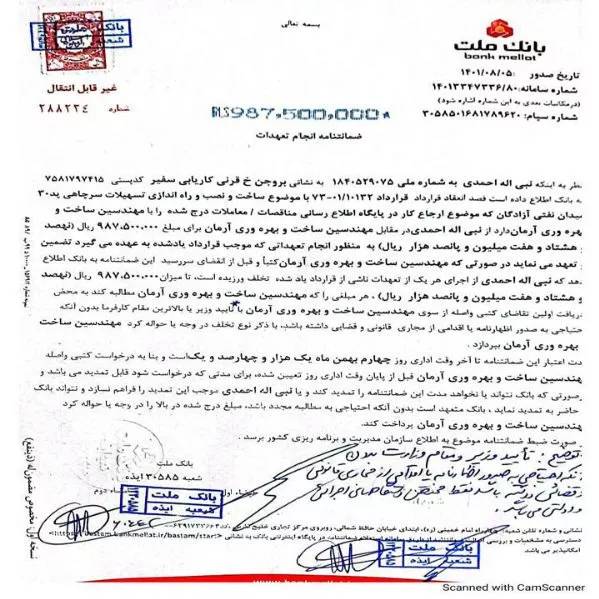 بسمه تعالی
بانک ملت
bank mellat
بانک ملت
شعبه ایذه
غیر قابل انتقال
شماره ۲۸۸۲۲۴
تاریخ صدور :۱۴۰۱/۰۸/۰۵
شماره سامانه:۱۴۰۱۳۳۴۷۳۳۶/۸۰
(درمکاتبات بعدی به این شماره اشاره شود)
شماره سپام: ۳۰۵۸۵۰۱۶۸۱۷۸۹۶۲۰
RLS987,500,000*
ضمانتنامه انجام تعهدات
نظر به اینکه نبی اله احمدی به شماره ملی ۱۸۴۰۵۲۹۰۷۵ به نشانی بروجن خ قرنی کاریابی سفیر کدپستی ۷۵۸۱۷۹۷۴۱۵
به بانک اطلاع داده است قصد انعقاد قرارداد قرارداد ۷۳-۰۱/۱۰۱۳۲ با موضوع ساخت و نصب و راه اندازی تسهیلات سرچاهی پد۳۰
میدان نفتی آزادگان که موضوع ارجاع کار در پایگاه اطلاع رسانی مناقصات / معاملات درج شده را با مهندسین ساخت و
بهره وری آرمان دارد از نبی اله احمدی در مقابل مهندسین ساخت و بهره وری آرمان برای مبلغ ۹۸۷,۵۰۰,۰۰۰ (نهصد
و هشتاد و هفت میلیون و پانصد هزار ریال) به منظور انجام تعهداتی که موجب قرارداد یادشده به عهده می گیرد تضمین
و تعهد می نماید در صورتی که مهندسین ساخت و بهره وری آرمان کتباً و قبل از انقضای سررسید این ضمانتنامه به بانک اطلاع
دهد که نبی اله احمدی از اجرای هر یک از تعهدات ناشی از قرارداد یاد شده تخلف ورزیده است، تا میزان ۹۸۷,۵۰۰,۰۰۰ ریال (نهصد
و هشتاد و هفت میلیون و پانصد هزار ریال) ، هر مبلغی را که مهندسین ساخت و بهره وری آرمان مطالبه کند به محض
دریافت اولین تقاضای کتبی واصله از سوی مهندسین ساخت و بهره وری آرمان با تأیید وزیر یا بالاترین مقام کارفرما بدون آنکه
احتیاجی به صدور اظهارنامه یا اقدامی از مجاری قانونی و قضایی داشته باشد، با ذکر نوع تخلف در وجه یا حواله کرد مهندسین ساخت
و بهره وری آرمان بپردازد .
مدت اعتبار این ضمانتنامه تا آخر وقت اداری روز چهارم بهمن ماه یک هزار و چهارصد و یک است و بنا به درخواست کتبی واصله
مهندسین ساخت و بهره وری آرمان قبل از پایان وقت اداری روز تعیین شده، برای مدتی که درخواست شود قابل تمدید می باشد و
در صورتی که بانک نتواند یا نخواهد مدت این ضمانتنامه را تمدید کند و یا نبی اله احمدی موجب این تمدید را فراهم نسازد و نتواند بانک
را حاضر به تمدید نماید ، بانک متعهد است بدون آنکه احتیاجی به مطالبه مجدد باشد، مبلغ درج شده در بالا را در وجه یا حواله کرد
مهندسین ساخت و بهره وری آرمان پرداخت کند.
در صورت ضبط ضمانتنامه موضوع به اطلاع سازمان مدیریت و برنامه ریزی کشور برسد .
بانک ملت
شعبه ۳۰۵۸۵ ایذه
بانک ملت
شعبه ایذه
بانک ملت
شعبه ایذه
نسخه اول: مخصوص مضمون له (ذینفع)
Scanned with CamScanner